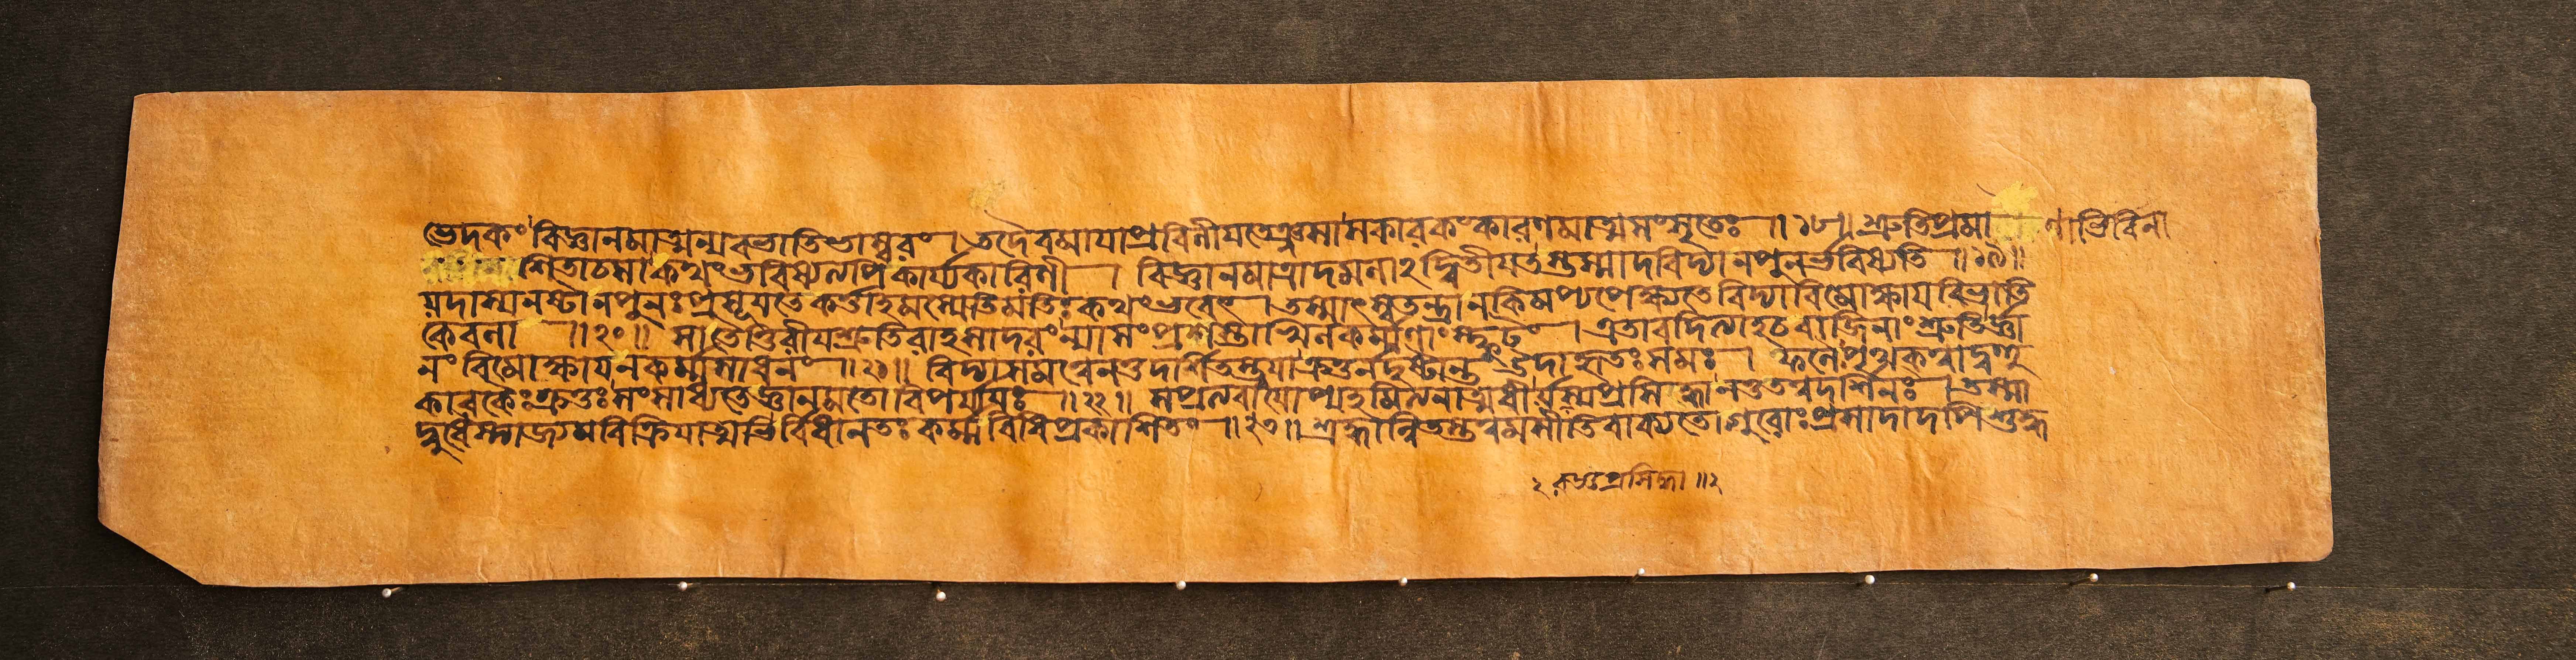 ভেদকং বিজ্ঞানমাত্মন্যবভাতিভাস্বরং । তদৈবমাযাপ্রবিলীযতেঞ্জসাসকারকংকারণমাত্মসংসৃতেঃ ॥ ১৮॥ শ্রুতিপ্রমাণাভিবিনা
শিতাচসাকথংভবিষ্যত্যপিকার্য্যকারিণী । বিজ্ঞানমাত্রাদমলা২দ্বিতীযতস্তস্মাদবিদ্যানপুনর্ভবিষ্যতি ॥১৯॥
যদাস্যনষ্টানপুনঃপ্রসূযতেকর্ত্তাহমস্যেতিমতিঃকথংভবেৎ । তস্মাৎস্বতন্ত্রানকিমপ্যপেক্ষ্যতেবিদ্যাবিমোক্ষাযবিভাতি
কেবলা ॥২০॥ সাতৈত্তিরীযশ্রুতিরাহসাদরংন্যাসংপ্রশস্তাখিলকর্ম্মণাংস্ফুটং । এতাবদিত্যাহচবাজিনাংশ্রুতির্জ্ঞা
নংবিমোক্ষাযনকর্ম্মসাধনং ॥২১॥ বিদ্যাসমত্বেনতুদর্শিতস্ত্বযাক্রতুর্নদৃষ্টান্তউদাহৃতঃসমঃ । ফলৈঃপৃথক্ত্বাদ্বহু
কারকৈঃক্রতুঃসংসাধ্যতেজ্ঞানমতোবিপর্য্যযঃ ॥২২॥ সপ্রত্যবাযোপ্যহমিত্যনাত্মধীর্যস্যপ্রসিদ্ধানতুতত্ত্বদর্শিনঃ । তস্মা
দ্বুধৈস্ত্যাজ্যমবিক্রিযাত্মভির্বিধানতঃকর্ম্মবিধিপ্রকাশিতং ॥২৩॥ শ্রদ্ধান্বিতস্তত্ত্বমসীতিবাক্যতোগুরোঃপ্রসাদাদপিশুদ্ধ